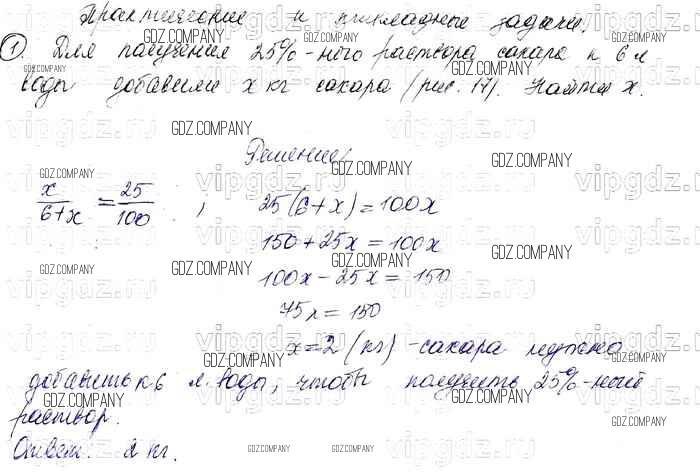 Практические и прикладные задачи.
1. Для получения 25%-ного раствора сахара к 6 л
воды добавили x кг сахара (рис. 17). Найти x.
Решение
x/(6+x) = 25/100 ; 25(6+x)=100x
150+25x=100x
100x-25x=150
75x=150
x=2 (кг) -сахара нужно
добавить к 6 л. воды, чтобы получить 25%-ный
раствор.
Ответ: 2 кг.
GDZ.COMPANY
vipgdz.ru